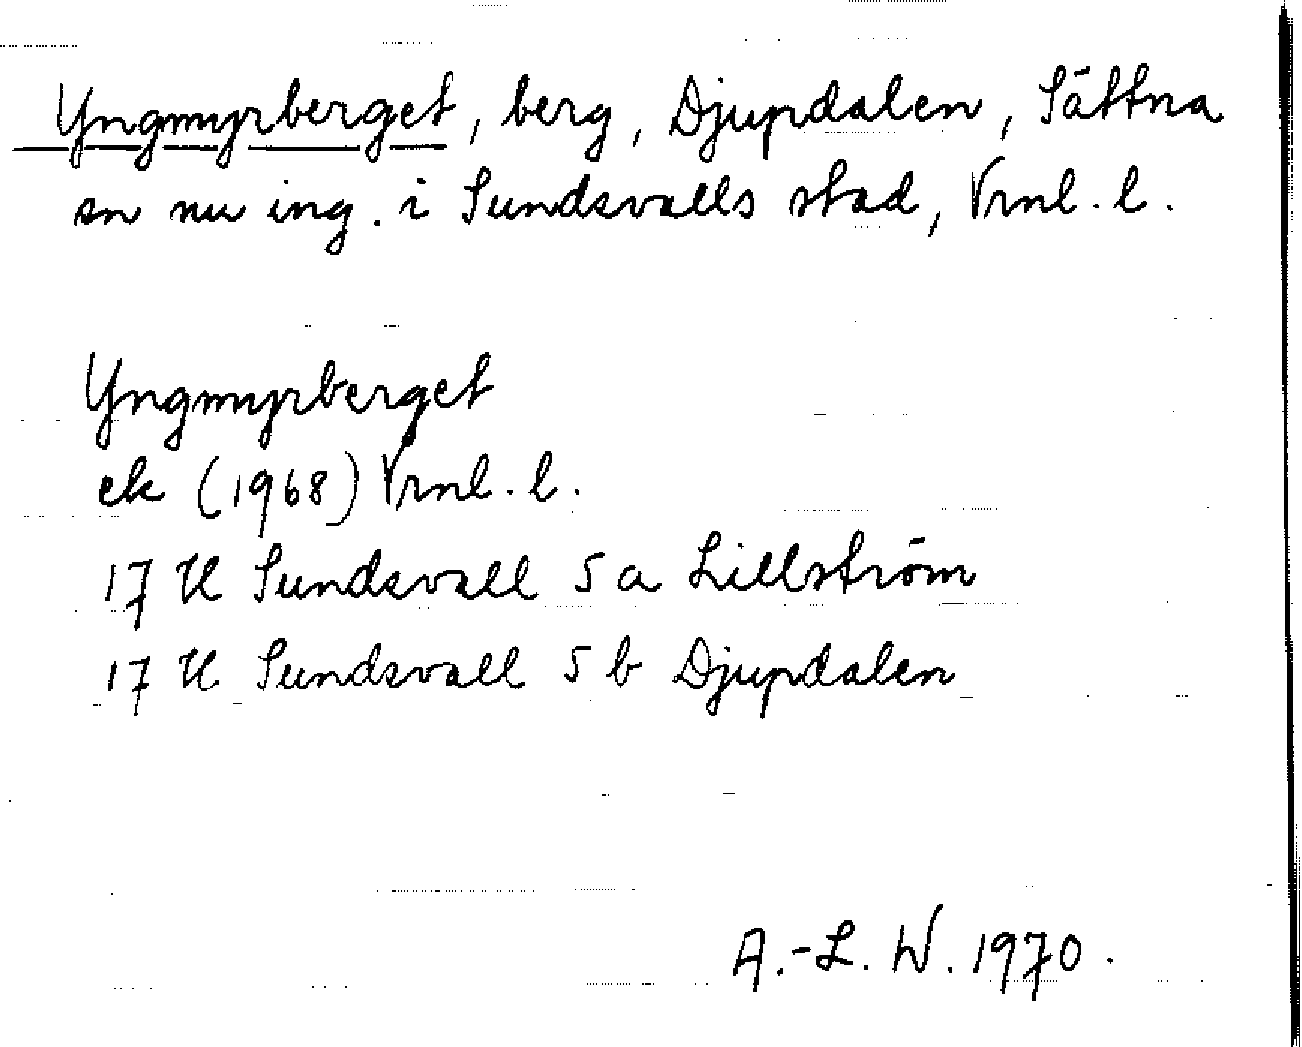 Yngmyrberget, berg, Djupdalen, Sättna
sn nu ing. i Sundsvalls stad, Vrnl. l.
Yngmyrberget
ek (1968) Vrnl. l.
17 H Sundsvall 5 a Lillström
17 H Sundsvall 5 b Djupdalen
A.-L. W. 1970.